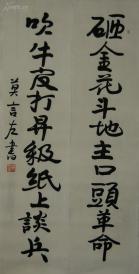 砸金花斗地主口頭革命
吹牛皮打昇級紙上談兵
莫言左書